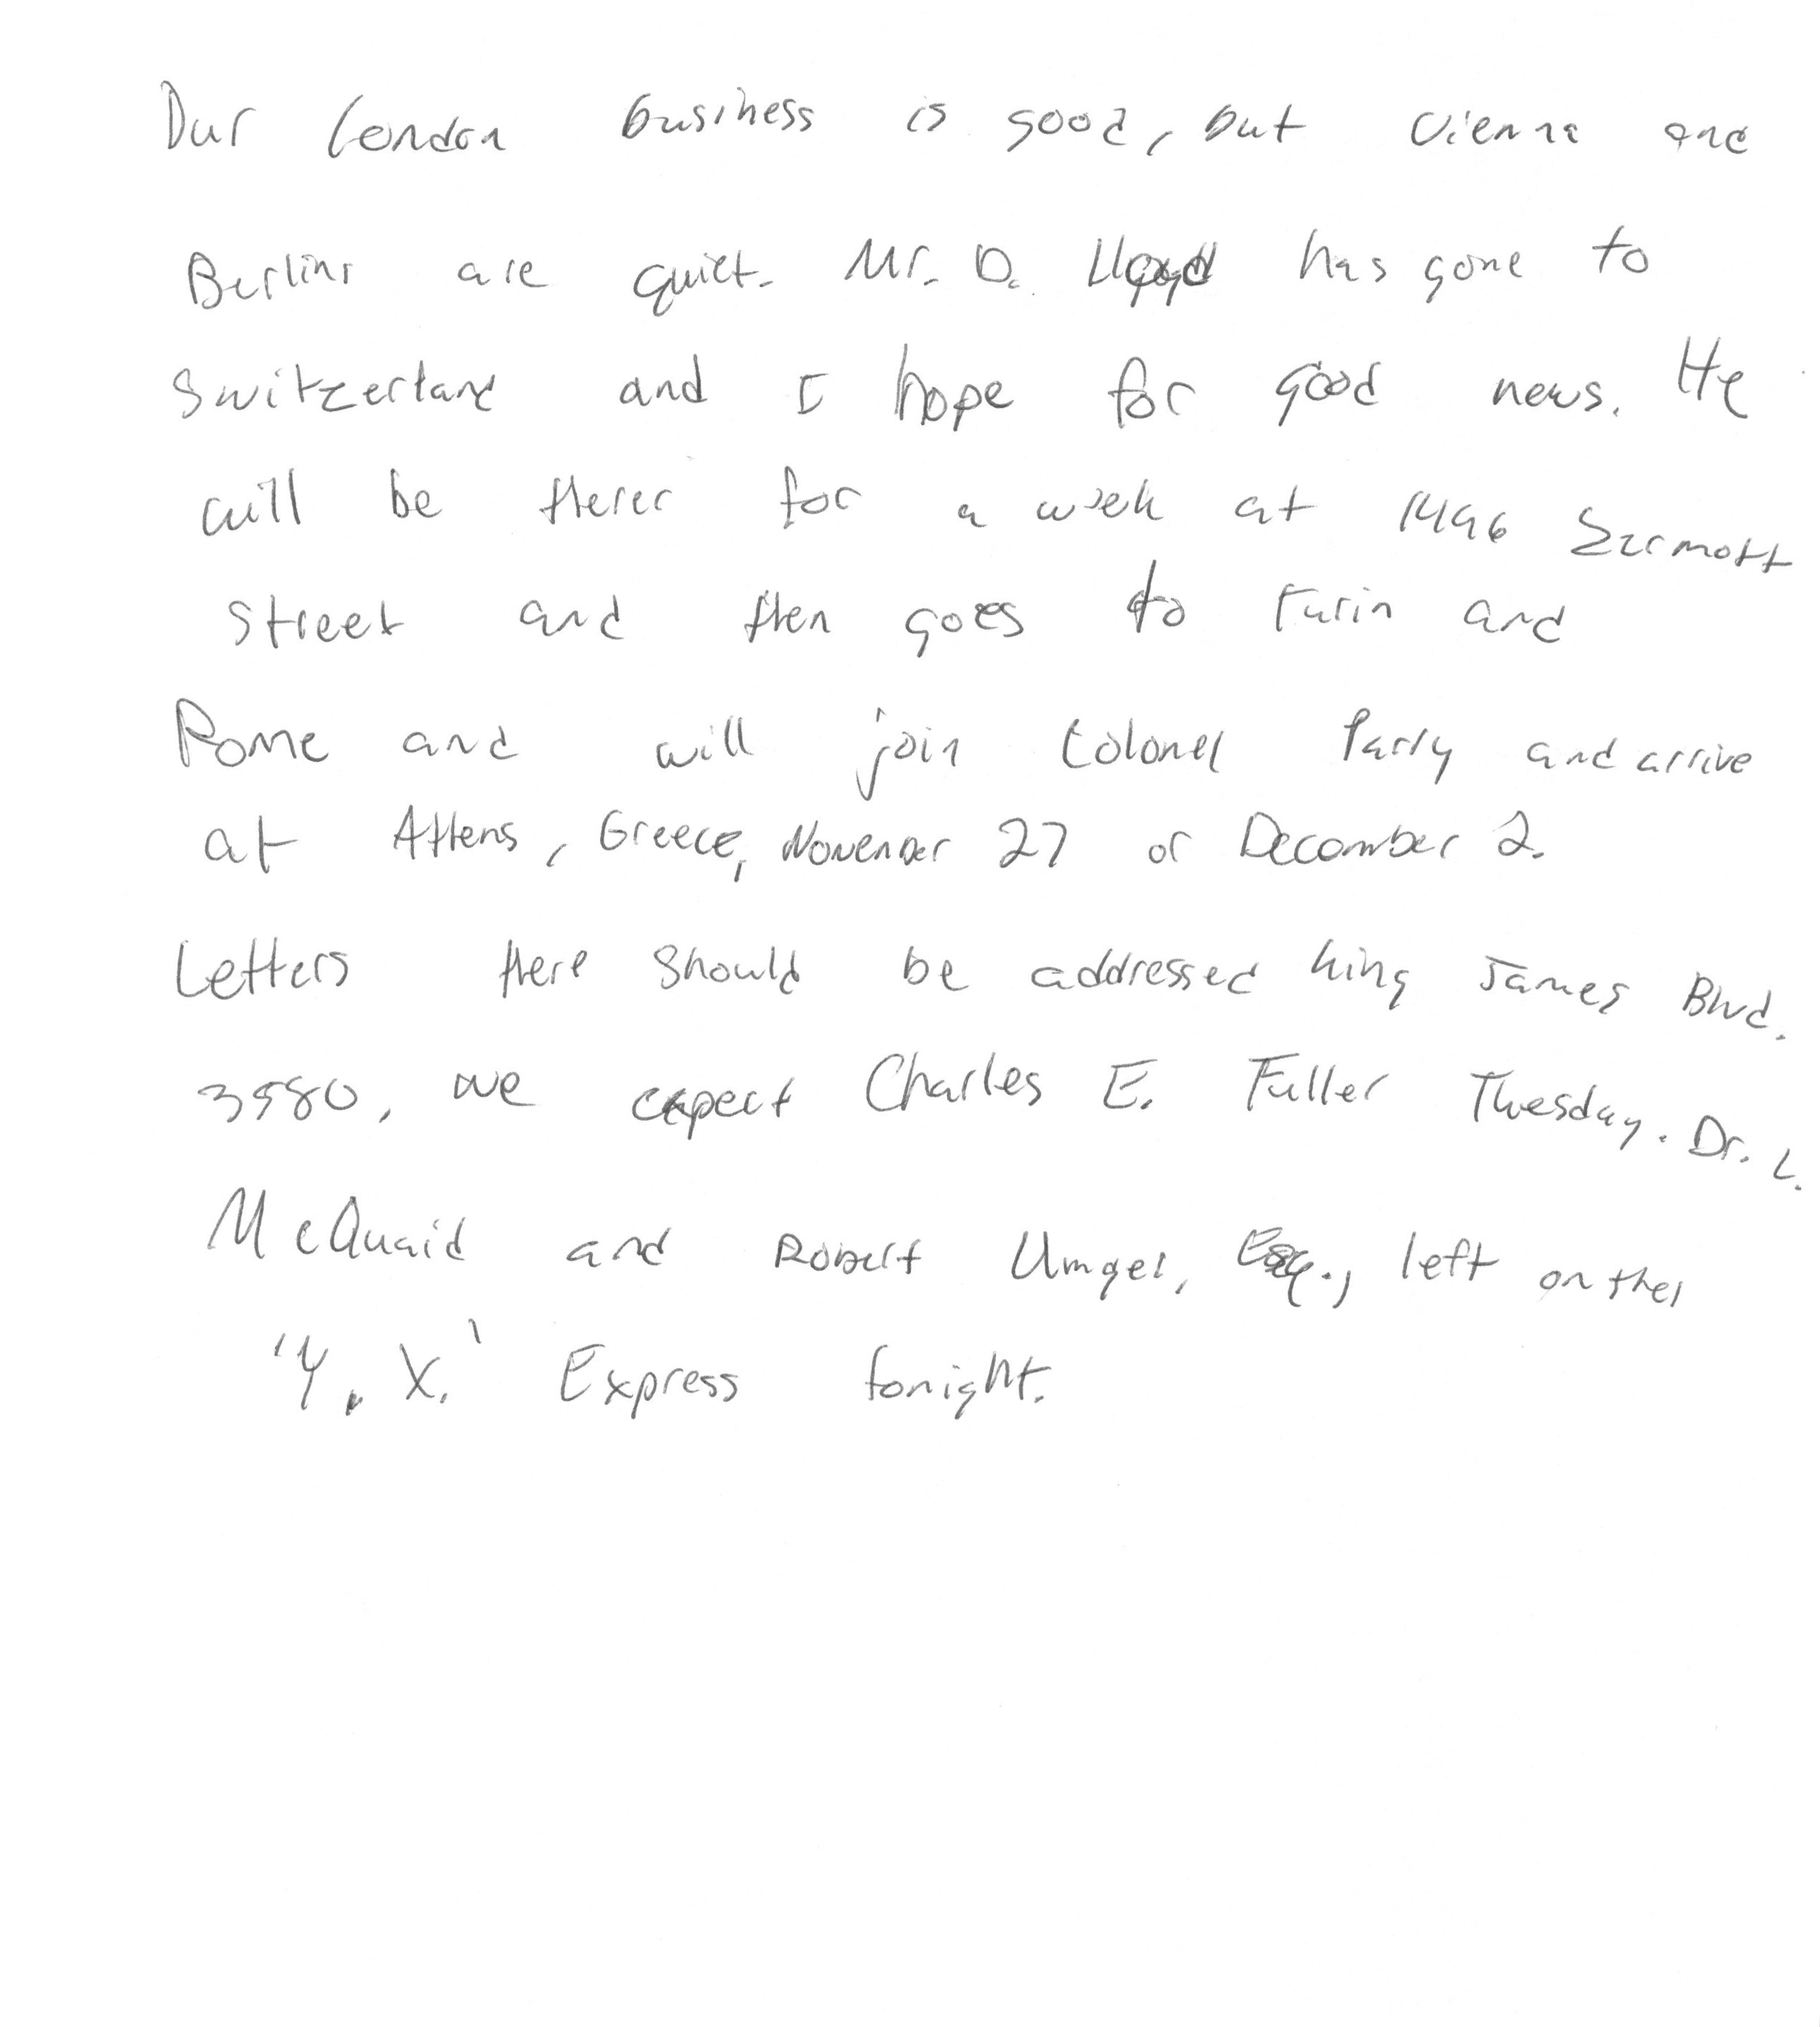 Our London business is good, but Vienna and
Berlin are quiet. Mr. D. Lloyd has gone to
Switzerland and I hope for good news. He
will be there for a week at 1496 Zermott
street and then goes to Turin and
Rome and will join Colonel Parry and arrive
at Athens, Greece, November 27 or December 2.
Letters there should be addressed King James Blvd.
3580, we expect Charles E. Fuller Tuesday. Dr. L.
McQuaid and Robert Unger, Esq., left on the
'Y. X.' Express tonight.